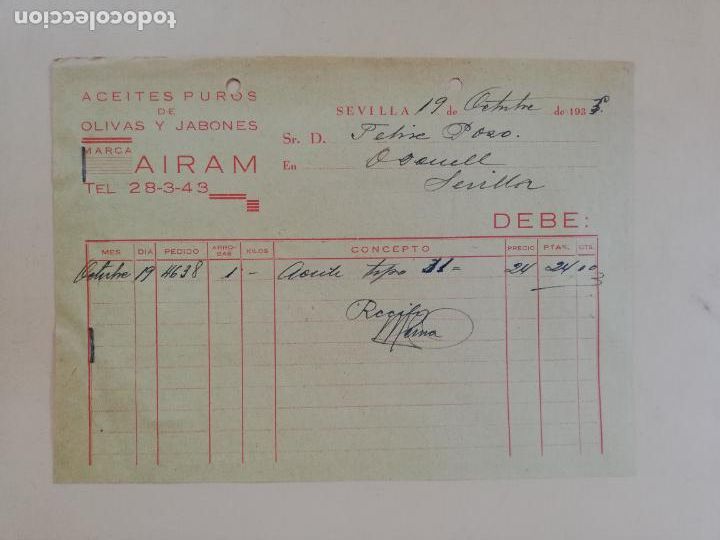 todocoleccion
ACEITES PUROS
DE
OLIVAS Y JABONES
MARCA
AIRAM
TEL 28-3-43
SEVILLA 19 de Octubre de 193
Sr. D. Felix Pozo.
En
Sevilla
DEBE:
MES DIA PEDIDO ARROBAS KILOS CONCEPTO PRECIO PTAS. CTS.
Octubre 19 4638 1 - Aceite tipo = 24 24 00
Recibí